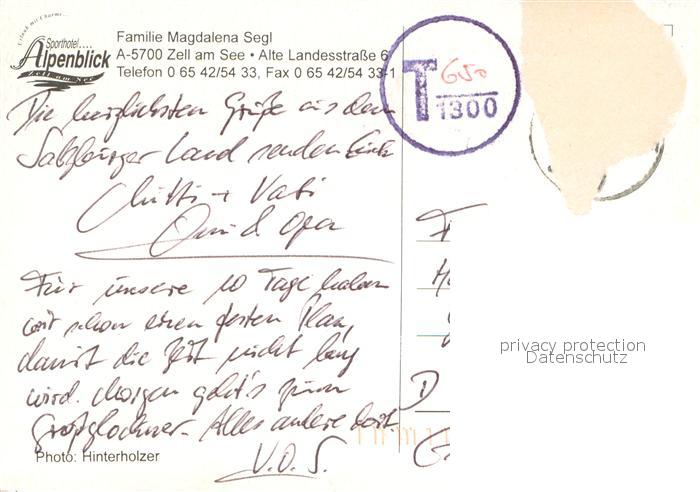 Urlaub mit Charme...
Sporthotel....
Alpenblick
Zell am See
Familie Magdalena Segl
A-5700 Zell am See • Alte Landesstraße 6
Telefon 0 65 42/54 33, Fax 0 65 42/54 33-1
T 650
1300
Die herzlichsten Grüße aus dem
Salzburger Land senden Euch
Mutti + Vati
Omi & Opa
Für unsere 10 Tage haben
wir schon einen festen Plan,
damit die Zeit nicht lang
wird. Morgen geht's zum
Großglockner. Alles andere dort
V.O.S.
D
privacy protection
Datenschutz
Photo: Hinterholzer